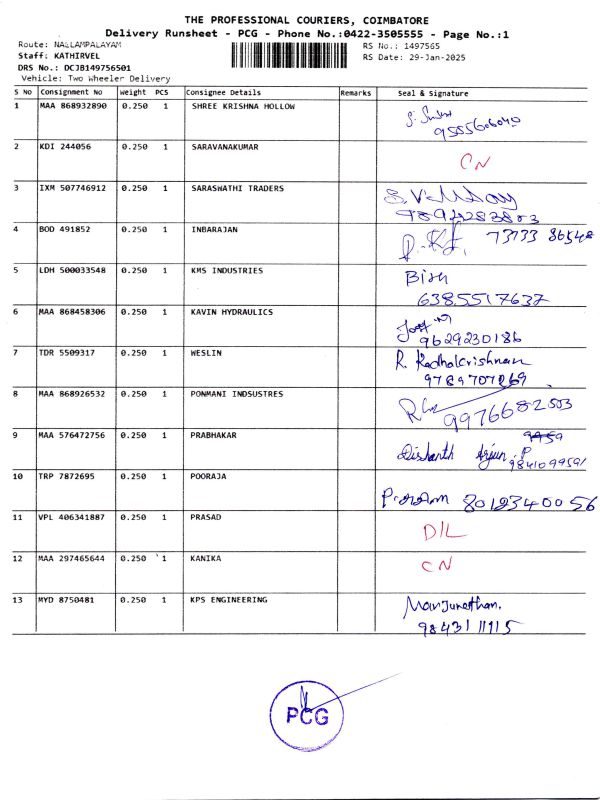 THE PROFESSIONAL COURIERS, COIMBATORE
Delivery Runsheet - PCG - Phone No.:0422-3505555 - Page No.:1
Route: NALLAMPALAYAM
RS No.: 1497565
Staff: KATHIRVEL
RS Date: 29-Jan-2025
DRS No.: DCJB149756501
Vehicle: Two Wheeler Delivery
S No Consignment No Weight PCS Consignee Details Remarks Seal & Signature
1 MAA 868932890 0.250 1 SHREE KRISHNA HOLLOW
9555606040
2 KDI 244056 0.250 1 SARAVANAKUMAR CN
3 IXM 507746912 0.250 1 SARASWATHI TRADERS
4 BOD 491852 0.250 1 INBARAJAN 73733 86548
5 LDH 500033548 0.250 1 KMS INDUSTRIES
6385517637
6 MAA 868458306 0.250 1 KAVIN HYDRAULICS
9629230186
7 TDR 5509317 0.250 1 WESLIN R. Radhakrishnan
9789707269
8 MAA 868926532 0.250 1 PONMANI INDSUSTRES
9976682503
9 MAA 576472756 0.250 1 PRABHAKAR Dishanth Arjun.P
9841099591
10 TRP 7872695 0.250 1 POORAJA
8012340056
11 VPL 406341887 0.250 1 PRASAD D/L
12 MAA 297465644 0.250 1 KANIKA CN
13 MYD 8750481 0.250 1 KPS ENGINEERING Manjunathan.
9843111915
PCG